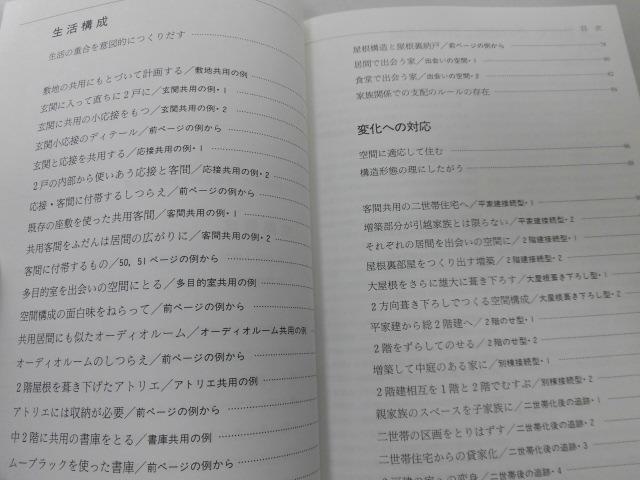 生活構成
生活の重合を意図的につくりだす
敷地の共用にもとづいて計画する／敷地共用の例
玄関に入って直ちに2戸に／玄関共用の例・1
玄関に共用の小応接をもつ／玄関共用の例・2
玄関小応接のディテール／前ページの例から
玄関と応接を共用する／応接共用の例・1
2戸の内部から使いあう応接と客間／応接共用の例・2
応接・客間に付帯するしつらえ／前ページの例から
既存の座敷を使った共用客間／客間共用の例・1
共用客間をふだんは居間の広がりに／客間共用の例・2
客間に付帯するもの／50, 51ページの例から
多目的室を出会いの空間にとる／多目的室共用の例
空間構成の面白味をねらって／前ページの例から
共用居間にも似たオーディオルーム／オーディオルーム共用の例
オーディオルームのしつらえ／前ページの例から
2階屋根を葺き下げたアトリエ／アトリエ共用の例
アトリエには収納が必要／前ページの例から
中2階に共用の書庫をとる／書庫共用の例
ムーブラックを使った書庫／前ページの例から
目次
屋根構造と屋根裏納戸／前ページの例から
居間で出会う家／出会いの空間・1
食堂で出会う家／出会いの空間・2
家族関係での支配のルールの存在
変化への対応
空間に適応して住む
構造形態の理にしたがう
客間共用の二世帯住宅へ／平家建接続型・1
増築部分が引越家族とは限らない／平家建接続型・2
それぞれの居間を出会いの空間に／2階建接続型・1
屋根裏部屋をつくり出す増築／2階建接続型・2
大屋根をさらに雄大に葺き下ろす／大屋根葺き下ろし型・1
2方向葺き下ろしでつくる空間構成／大屋根葺き下ろし型・2
平家建から総2階建へ／2階のせ型・1
2階をずらしてのせる／2階のせ型・2
増築して中庭のある家に／別棟接続型・1
2階建相互を1階と2階でむすぶ／別棟接続型・2
親家族のスペースを子家族に／二世帯化後の追跡・1
二世帯の区画をとりはずす／二世帯化後の追跡・2
二世帯住宅からの貸家化／二世帯化後の追跡・3
の家への変身／二世帯化後の追跡・4